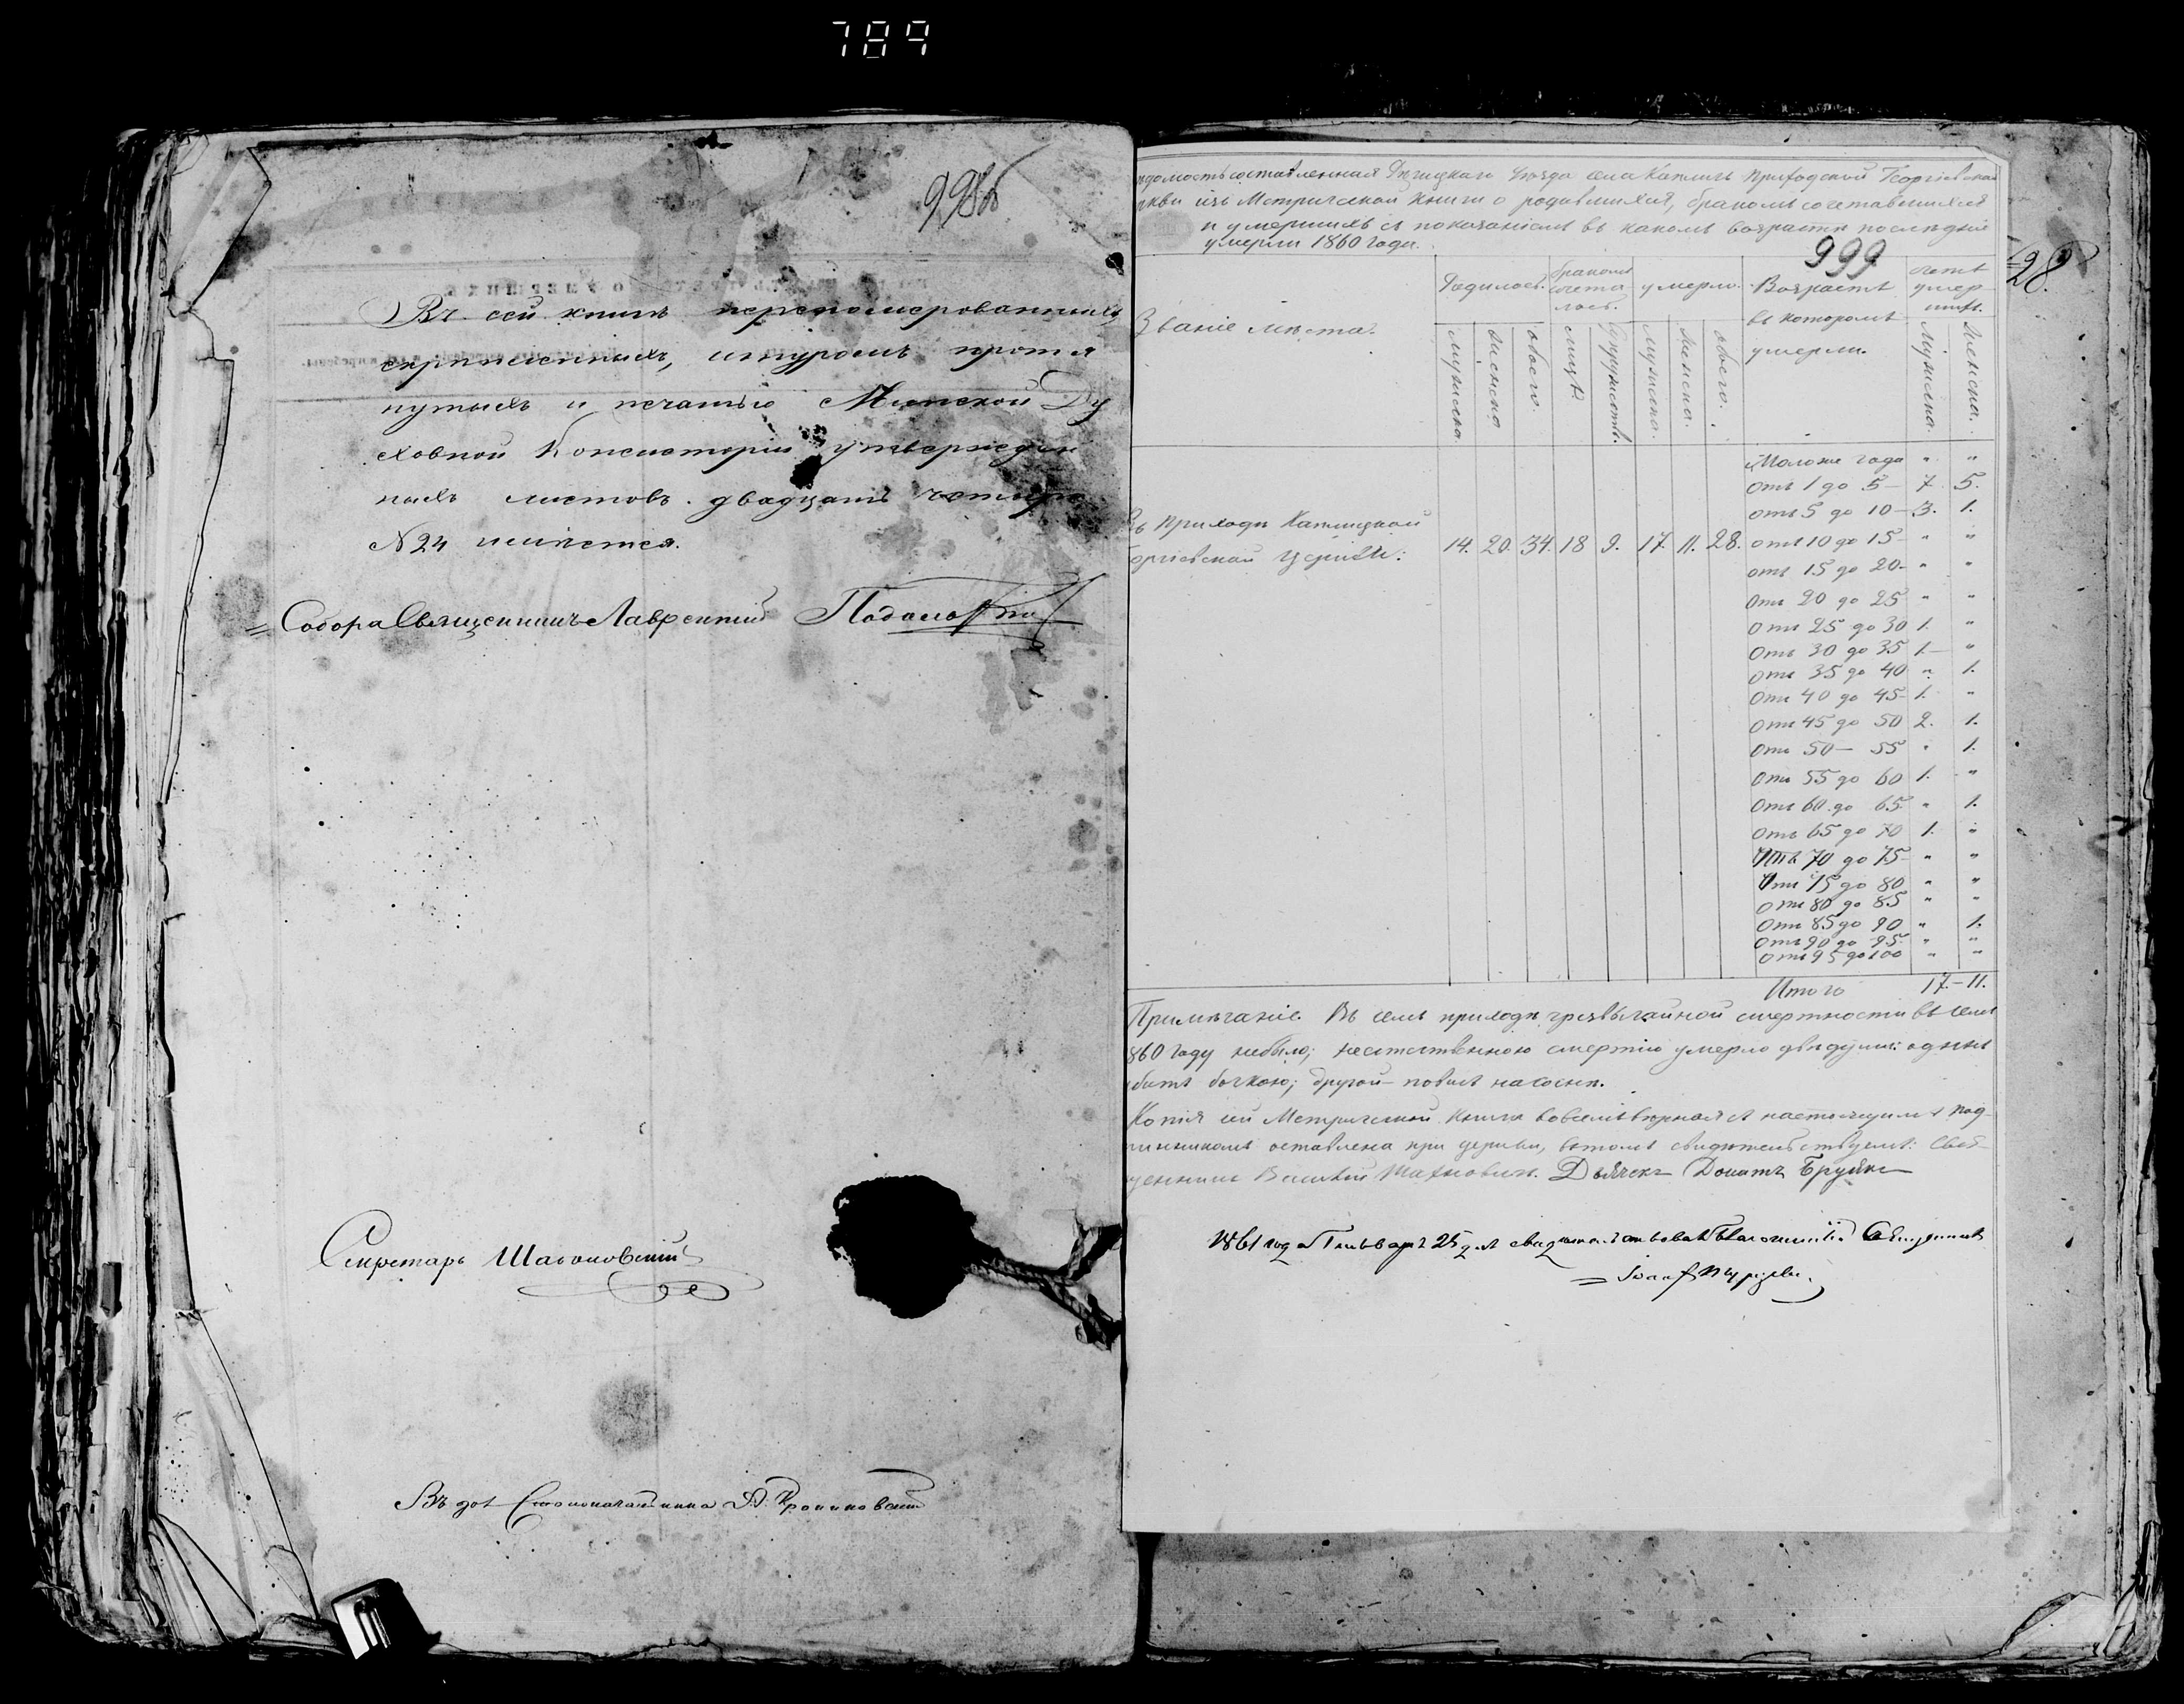 789
998об
Въ сей книгѣ переномерованныхъ
скрѣпленныхъ, шнуромъ протя
нутыхъ и печатью Минской Ду
ховной Консисторіи утвержден
ныхъ листовъ двадцать четыре
N 24 имѣется.
Собора Священникъ Лаврентій
Секретарь
Въ дол Столоначальника
28.
999
домость составленная Рѣчицкаго Уѣзда села приходской Георгіевской
ркви изъ Метрической книги о родившихся, бракомъ сочетавшихся
и умершихъ съ показаніемъ въ какомъ возрастѣ послѣдніе
умерли 1860 года.
Званіе мѣста
Родилось. бракомъ сочета лось. умерло. Возрастъ въ которомъ умерли. счетъ умер шихъ.
мужеска женска обоего. лицъ супружествъ. мужеска. женска. обоего. Мужеска. Женска.
Моложе года " "
отъ 1 до 5 — 7. 5.
отъ 5 до 10 — 3. 1.
въ приходѣ
оргіевской церкви: 14. 20. 34. 18 9. 17. 11. 28. отъ 10 до 15 — " "
отъ 15 до 20 — " "
отъ 20 до 25 " "
отъ 25 до 30 1. "
отъ 30 до 35 1. "
отъ 35 до 40 " 1.
отъ 40 до 45 1. "
отъ 45 до 50 2. 1.
отъ 50 — 55 " 1.
отъ 55 до 60 1. "
отъ 60 до 65 " 1.
отъ 65 до 70 1. "
отъ 70 до 75 " "
отъ 75 до 80 " "
отъ 80 до 85 " "
отъ 85 до 90 " 1.
отъ 90 до 95 " "
отъ 95 до 100 " "
Итого 17. — 11.
Примѣчаніе. Въ семъ приходѣ чрезвычайной смертности въ семъ
860 году небыло; неестественною смертію умерло двѣ души: одинъ
убитъ бочкою; другой — повисъ на соснѣ.
Копія сей Метрической книги вовсемъ вѣрная съ настоящимъ под
линникомъ оставлена при церкви, въ томъ свидѣтельствуемъ: Свя
щенникъ Василій Махновичъ. Дьячекъ Донатъ
1861 года Генваря 25 дня свидѣтельствовалъ Благочинный Священникъ